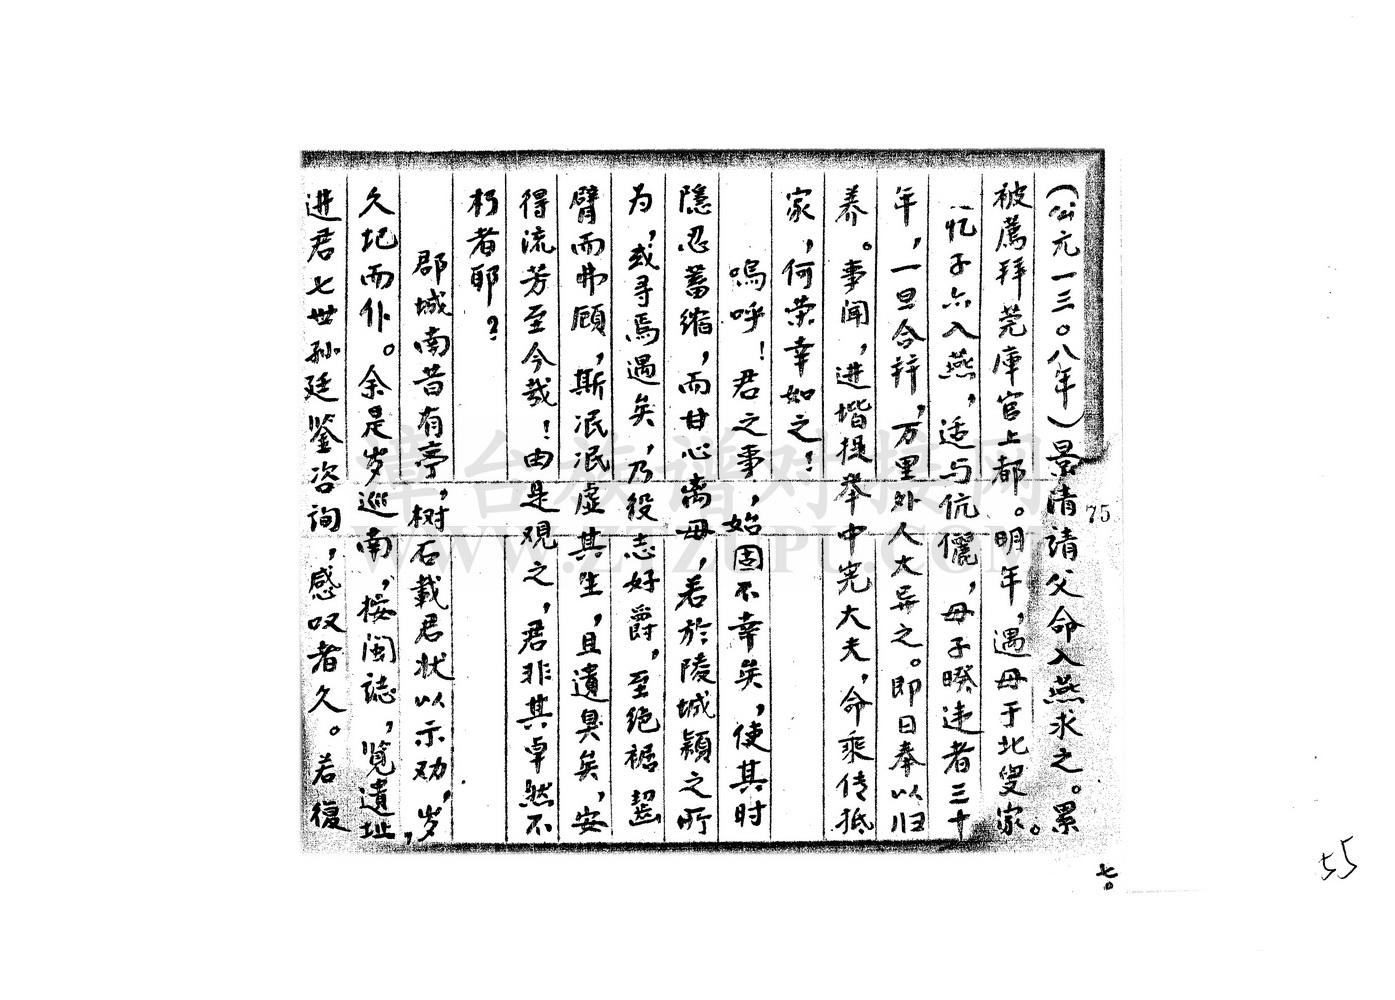 (公元一三〇八年)景清请父命入燕求之。累
被薦拜莞庫官上都。明年,遇母于北叟家。
忆子六入燕,适与伉儷,母子暌违者三十
年,一旦合辩,万里外人大异之。即日奉以归
养。事闻,进堦提举中宪大夫,命乘传抵
家,何荣幸如之!
嗚呼!君之事,始固不幸矣,使其时
隱忍蓄缩,而甘心离母,若於陵城颍之所
为,或寻焉遇矣,乃役志好爵,至绝裾齧
臂而弗顾,斯泯泯虚其生,且遺臭矣,安
得流芳至今哉!由是观之,君非其卓然不
朽者耶?
郡城南昔有亭,树石載君状以示劝,岁
久圮而仆。余是岁巡南,按闽誌,览遺址,
进君七世孙廷鉴咨询,感叹者久。若復
75
七〇
55
章台族谱对接网
WWW.ZTZUPU.COM